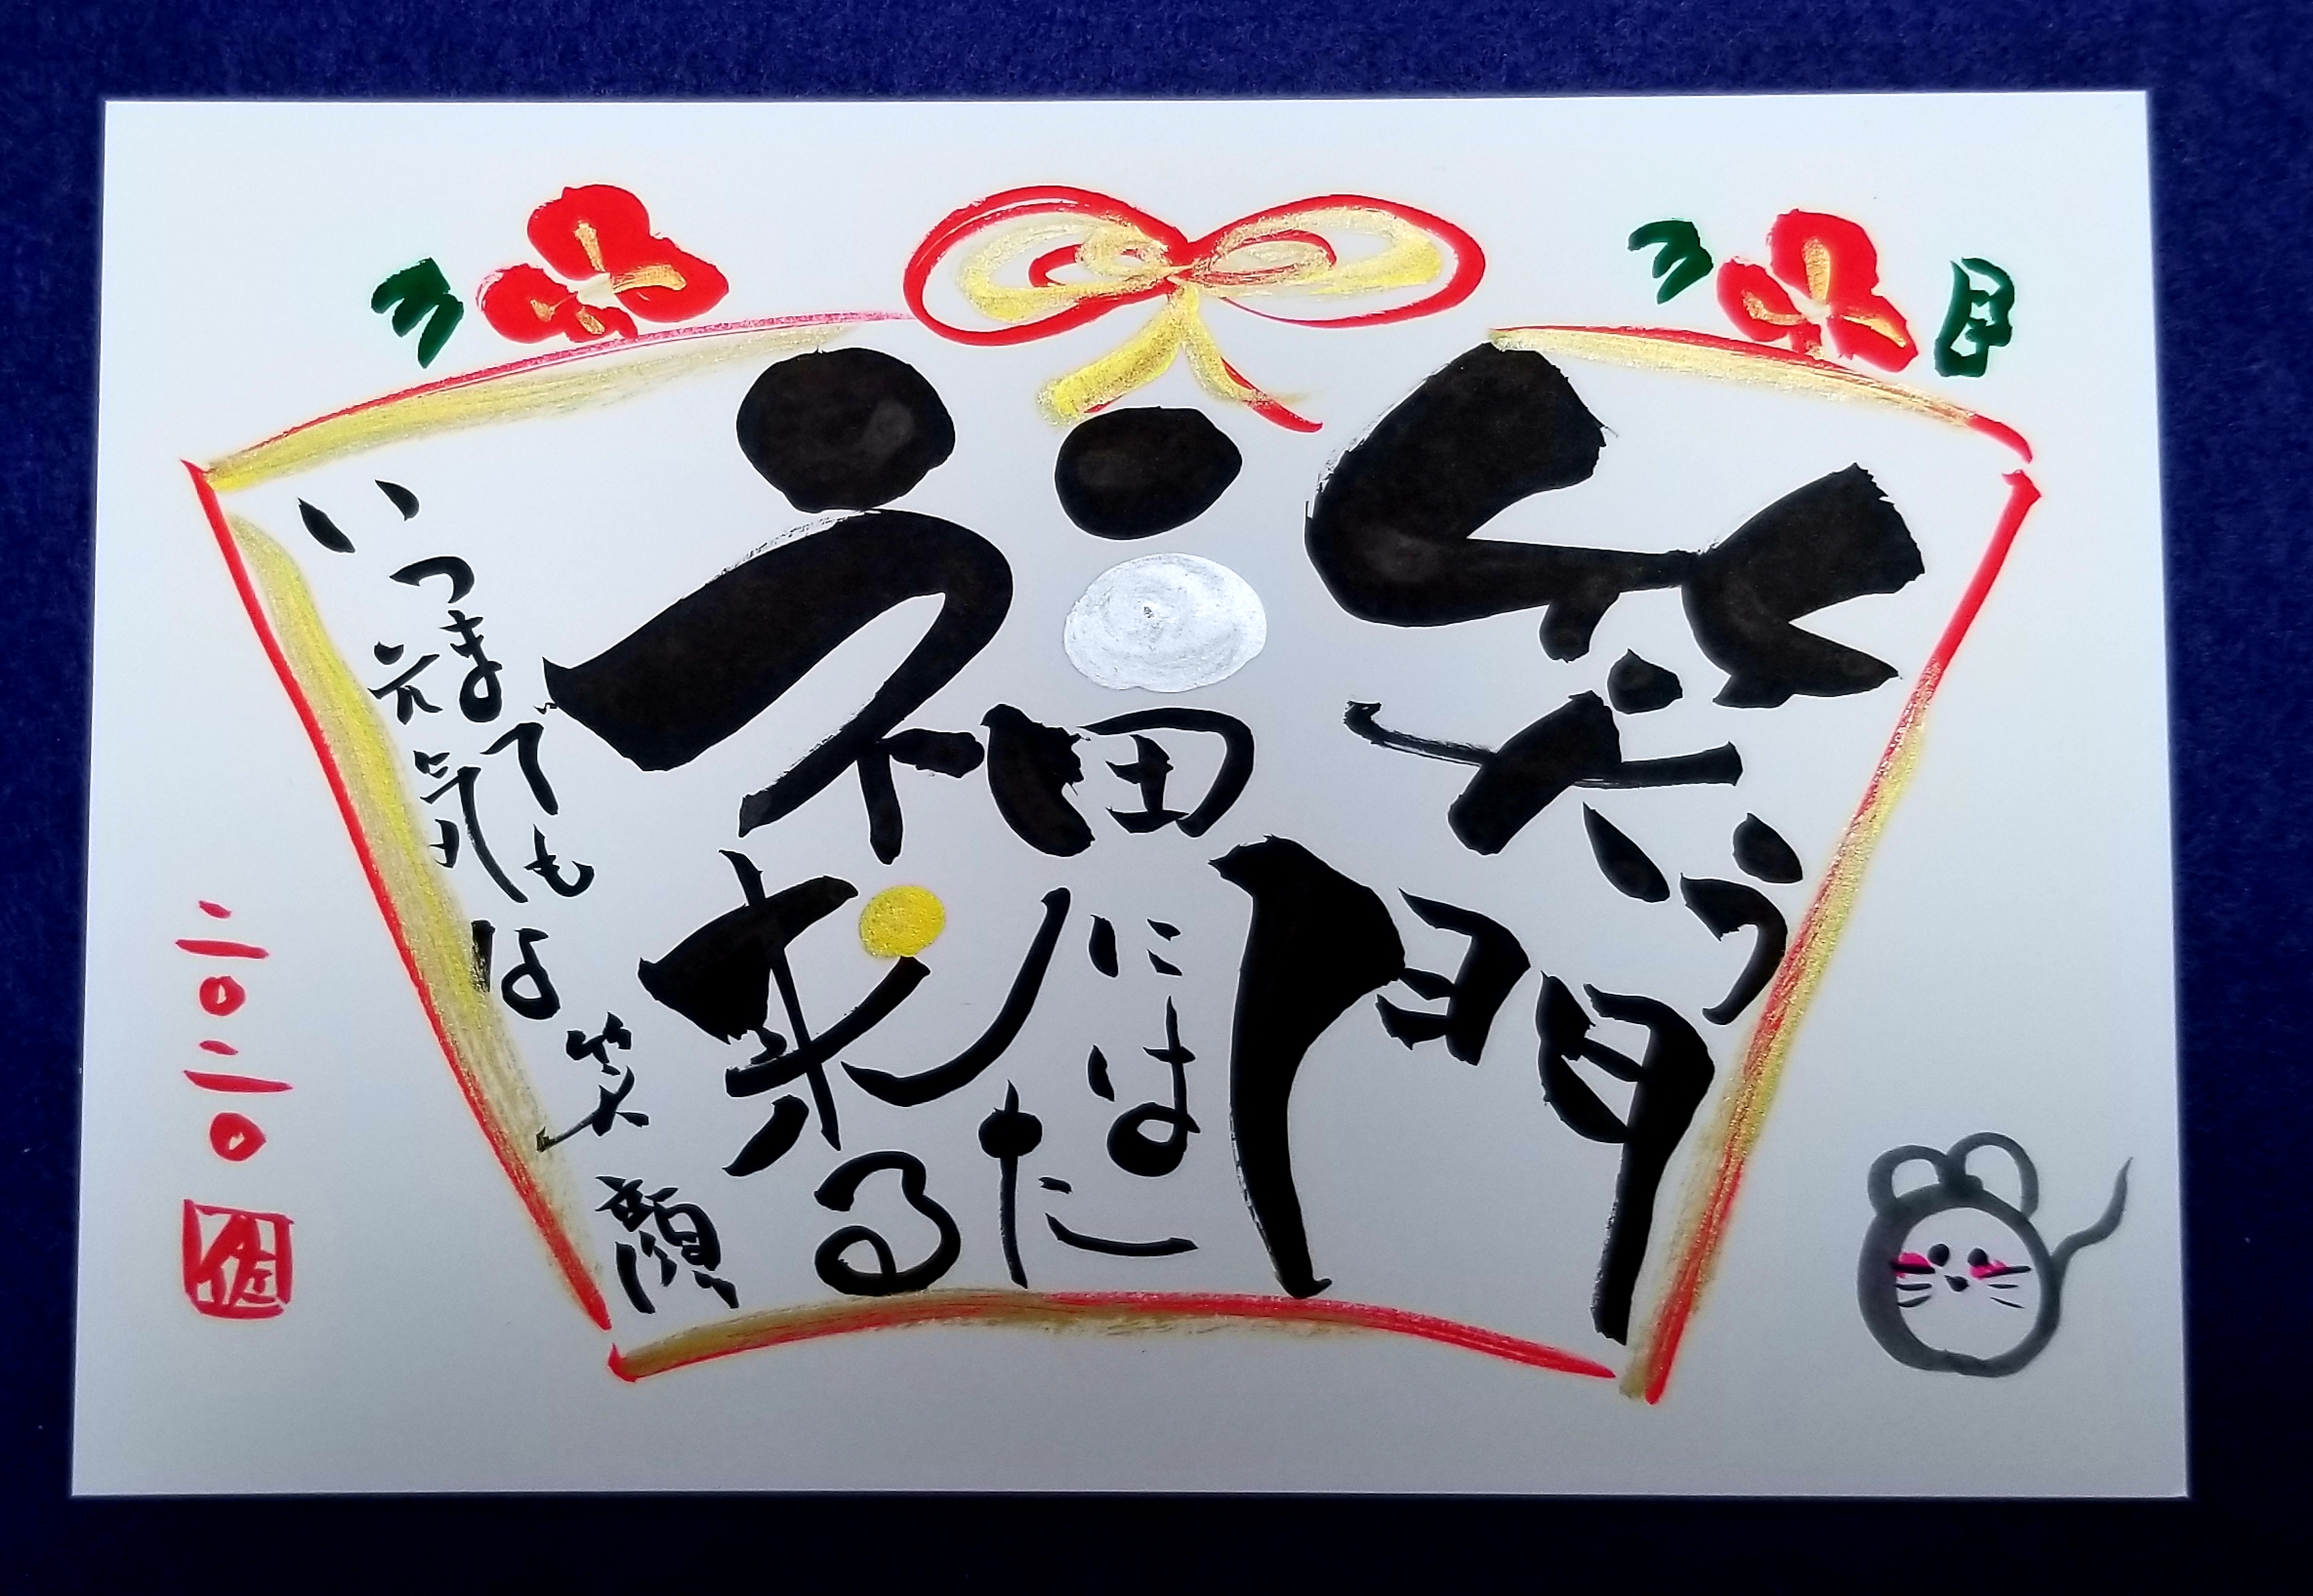 笑う門
には
福
来たる
いつまでも
元気な笑顔
二〇二〇
佐